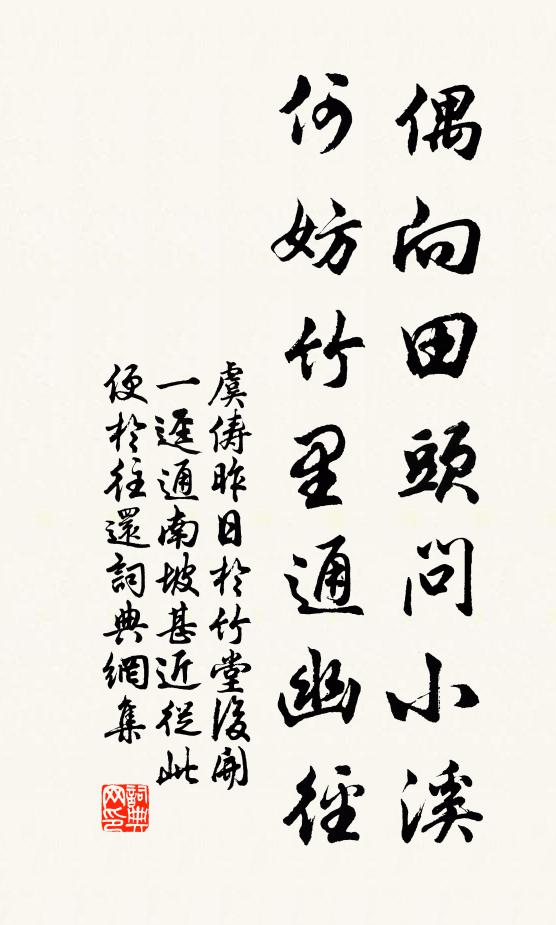 偶向田頭問小溪
何妨竹里通幽徑
虞儔昨日於竹堂後開
一遥通南坡甚近從此
便於往還詞典網集
詞典网印